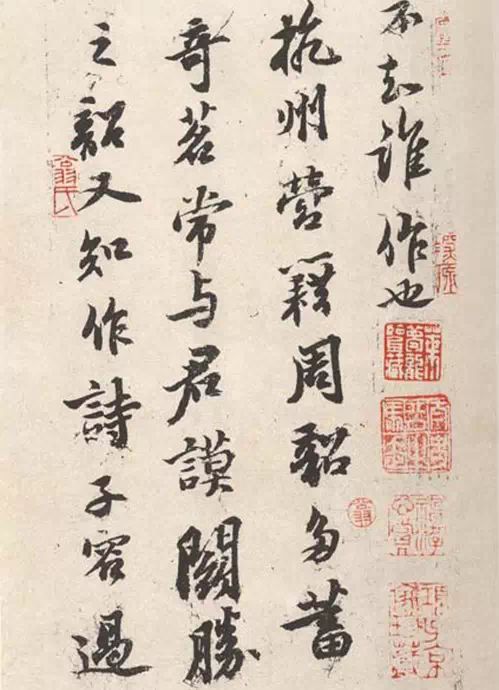 不知誰作也
杭州營籍周韶多蓄
奇茗常与君謨鬭勝
之韶又知作詩子容過
翁氏